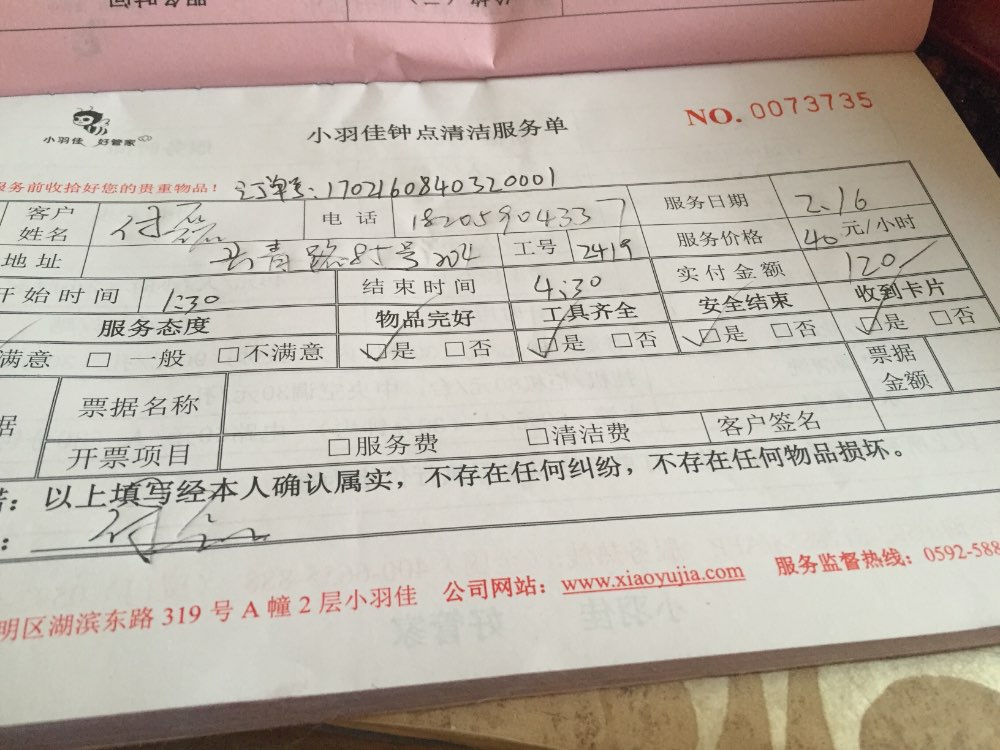 小羽佳 好管家
小羽佳钟点清洁服务单
NO. 0073735
服务前收拾好您的贵重物品！ 订单号：1702160840320001
客户姓名 付磊 电话 18205904337 服务日期 2.16
地址 长青路85号204 工号 2419 服务价格 40元/小时
开始时间 1:30 结束时间 4:30 实付金额 120
服务态度 物品完好 工具齐全 安全结束 收到卡片
满意 □ 一般 □不满意 ☑是 □否 ☑是 □否 ☑是 □否 ☑是 □否
据 票据名称 票据金额
开票项目 □服务费 □清洁费 客户签名
：以上填写经本人确认属实，不存在任何纠纷，不存在任何物品损坏。
：付磊
明区湖滨东路 319 号 A 幢 2 层小羽佳 公司网站：www.xiaoyujia.com 服务监督热线：0592-588